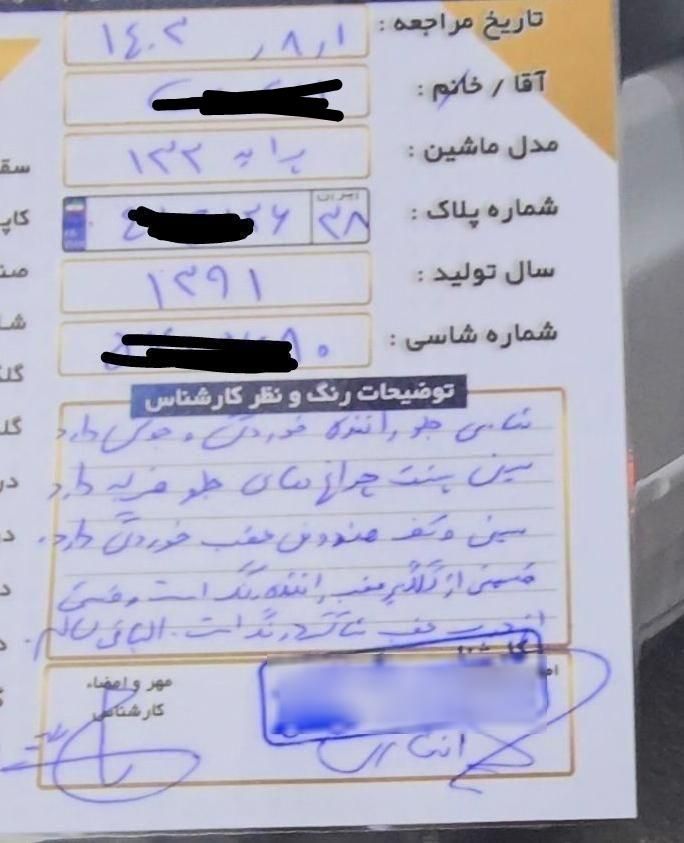 تاریخ مراجعه : ۱٫۸٫۱۴۰۳
آقا / خانم :
مدل ماشین : پراید ۱۳۲
شماره پلاک : ایران ۳۸
سال تولید : ۱۳۹۱
شماره شاسی :
توضیحات رنگ و نظر کارشناس
شاسی جلو راننده خوردگی و جوش دارد
سینی پشت چراغ های جلو ضربه دارد
سینی و کف صندوق عقب خوردگی دارد.
قسمتی از گلگیر عقب راننده رنگ است و قسمتی
از درب عقب شاگرد رنگ است. الباقی سالم.
مهر و امضاء
کارشناس
سقف
کاپ
صند
شا
گلگ
گلگ
در
در